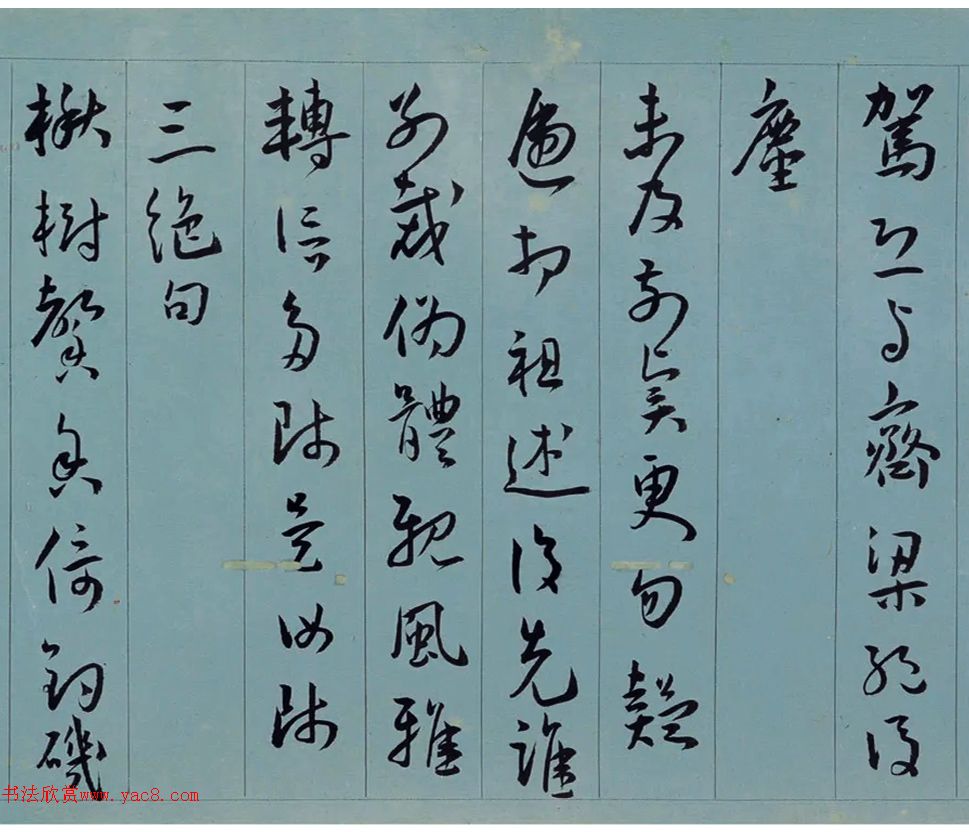 駕恐与齊梁後
塵
未及前賢更勿疑
遞相祖述復先誰
別裁偽體親風雅
轉益多師是汝師
三絶句
楸樹馨香倚釣磯
书法欣赏www.yac8.com